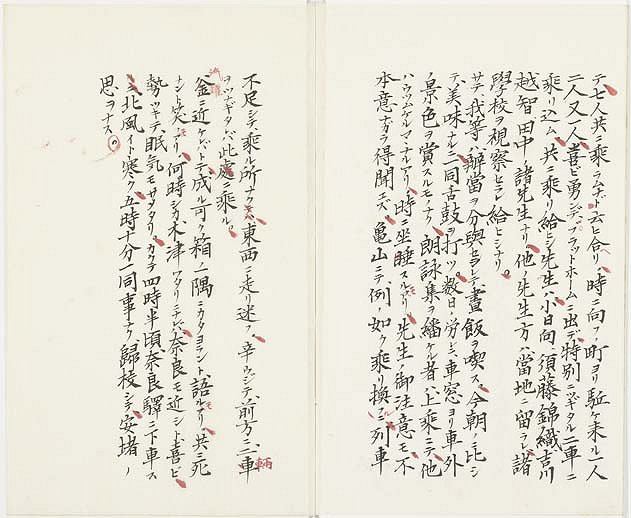 テ七人共ニ乗ラムナド云ヒ合ヘリ、時ニ向フノ町ヨリ駈ケ来ル一人
二人又一人喜ビ勇ンデ、プラットホームニ出デ特別ニツギタル二車ニ
乗リ込ム、共ニ乗リ給ヒシ先生ハ小日向、須藤、錦織、吉川
越智、田中ノ諸先生ナリ、他ノ先生方ハ當地ニ留ラレ諸
學校ヲ視察セラレ給ヒシナリ。
サテ我等ハ辦當ヲ分與セラレテ晝飯ヲ喫ス、今朝ノニ比シ
テ、美味ナルニ一同舌鼓ヲ打ツ。数日ノ労レニ、車窓ヨリ車外
ノ景色ヲ賞スルモノナク、朗詠集ヲ繙ケル者ハ上乗ニテ、他
ハウツムケルマヽナルアリ、時ニ坐睡スルモアリ、先生ノ御注意モ不
本意ナガラ得聞エズ、亀山ニテ例ノ如ク乗リ換ヘシニ列車
不足シテ乗ル所ナクテ、東西ニ走リ迷フ、辛ウジテ前方ニ二車輛
ヲツナギタレバ此處ニ乗ル。
釜ニ近ケレバトテ、成ル可ク箱ノ一隅ニカタヨラント、語ルアリ、共ニ死
ナント笑フモアリ、何時シカ木津ワタリニナレバ、奈良モ近シト喜ビ
勢ツキテ眠気モサメタリ、カクテ四時半頃奈良驛ニ下車ス
北風イト寒ク、五時十分一同事ナク、歸校シテ安堵ノ
思ヲナス。